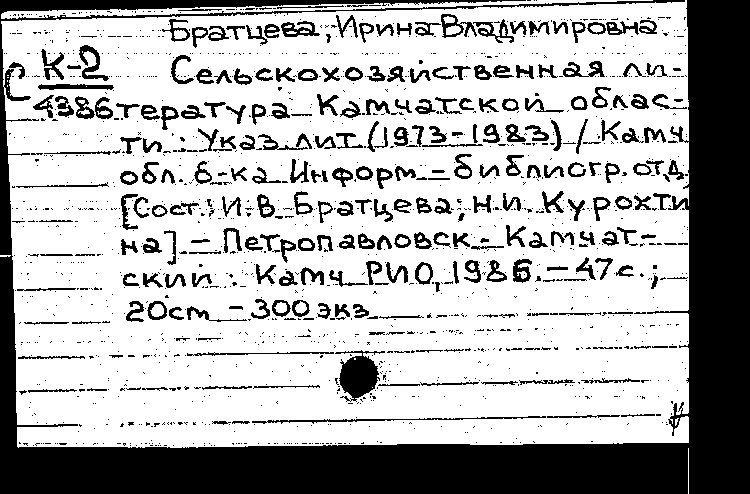 Братцева, Ирина Владимировна.
С К-2 Сельскохозяйственная ли-
4386 тература Камчатской облас-
ти : Указ. лит. (1973-1983) / Камч.
обл. б-ка Информ.-библиогр. отд.
[Сост.: И.В. Братцева; Н.И. Курохти
на] - Петропавловск-Камчат-
ский : Камч. РИО, 1986. - 47 с. ;
20 cm - 300 экз